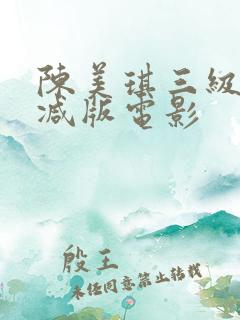 陳美琪三級
减版電影
殷王
未经同意禁止转载